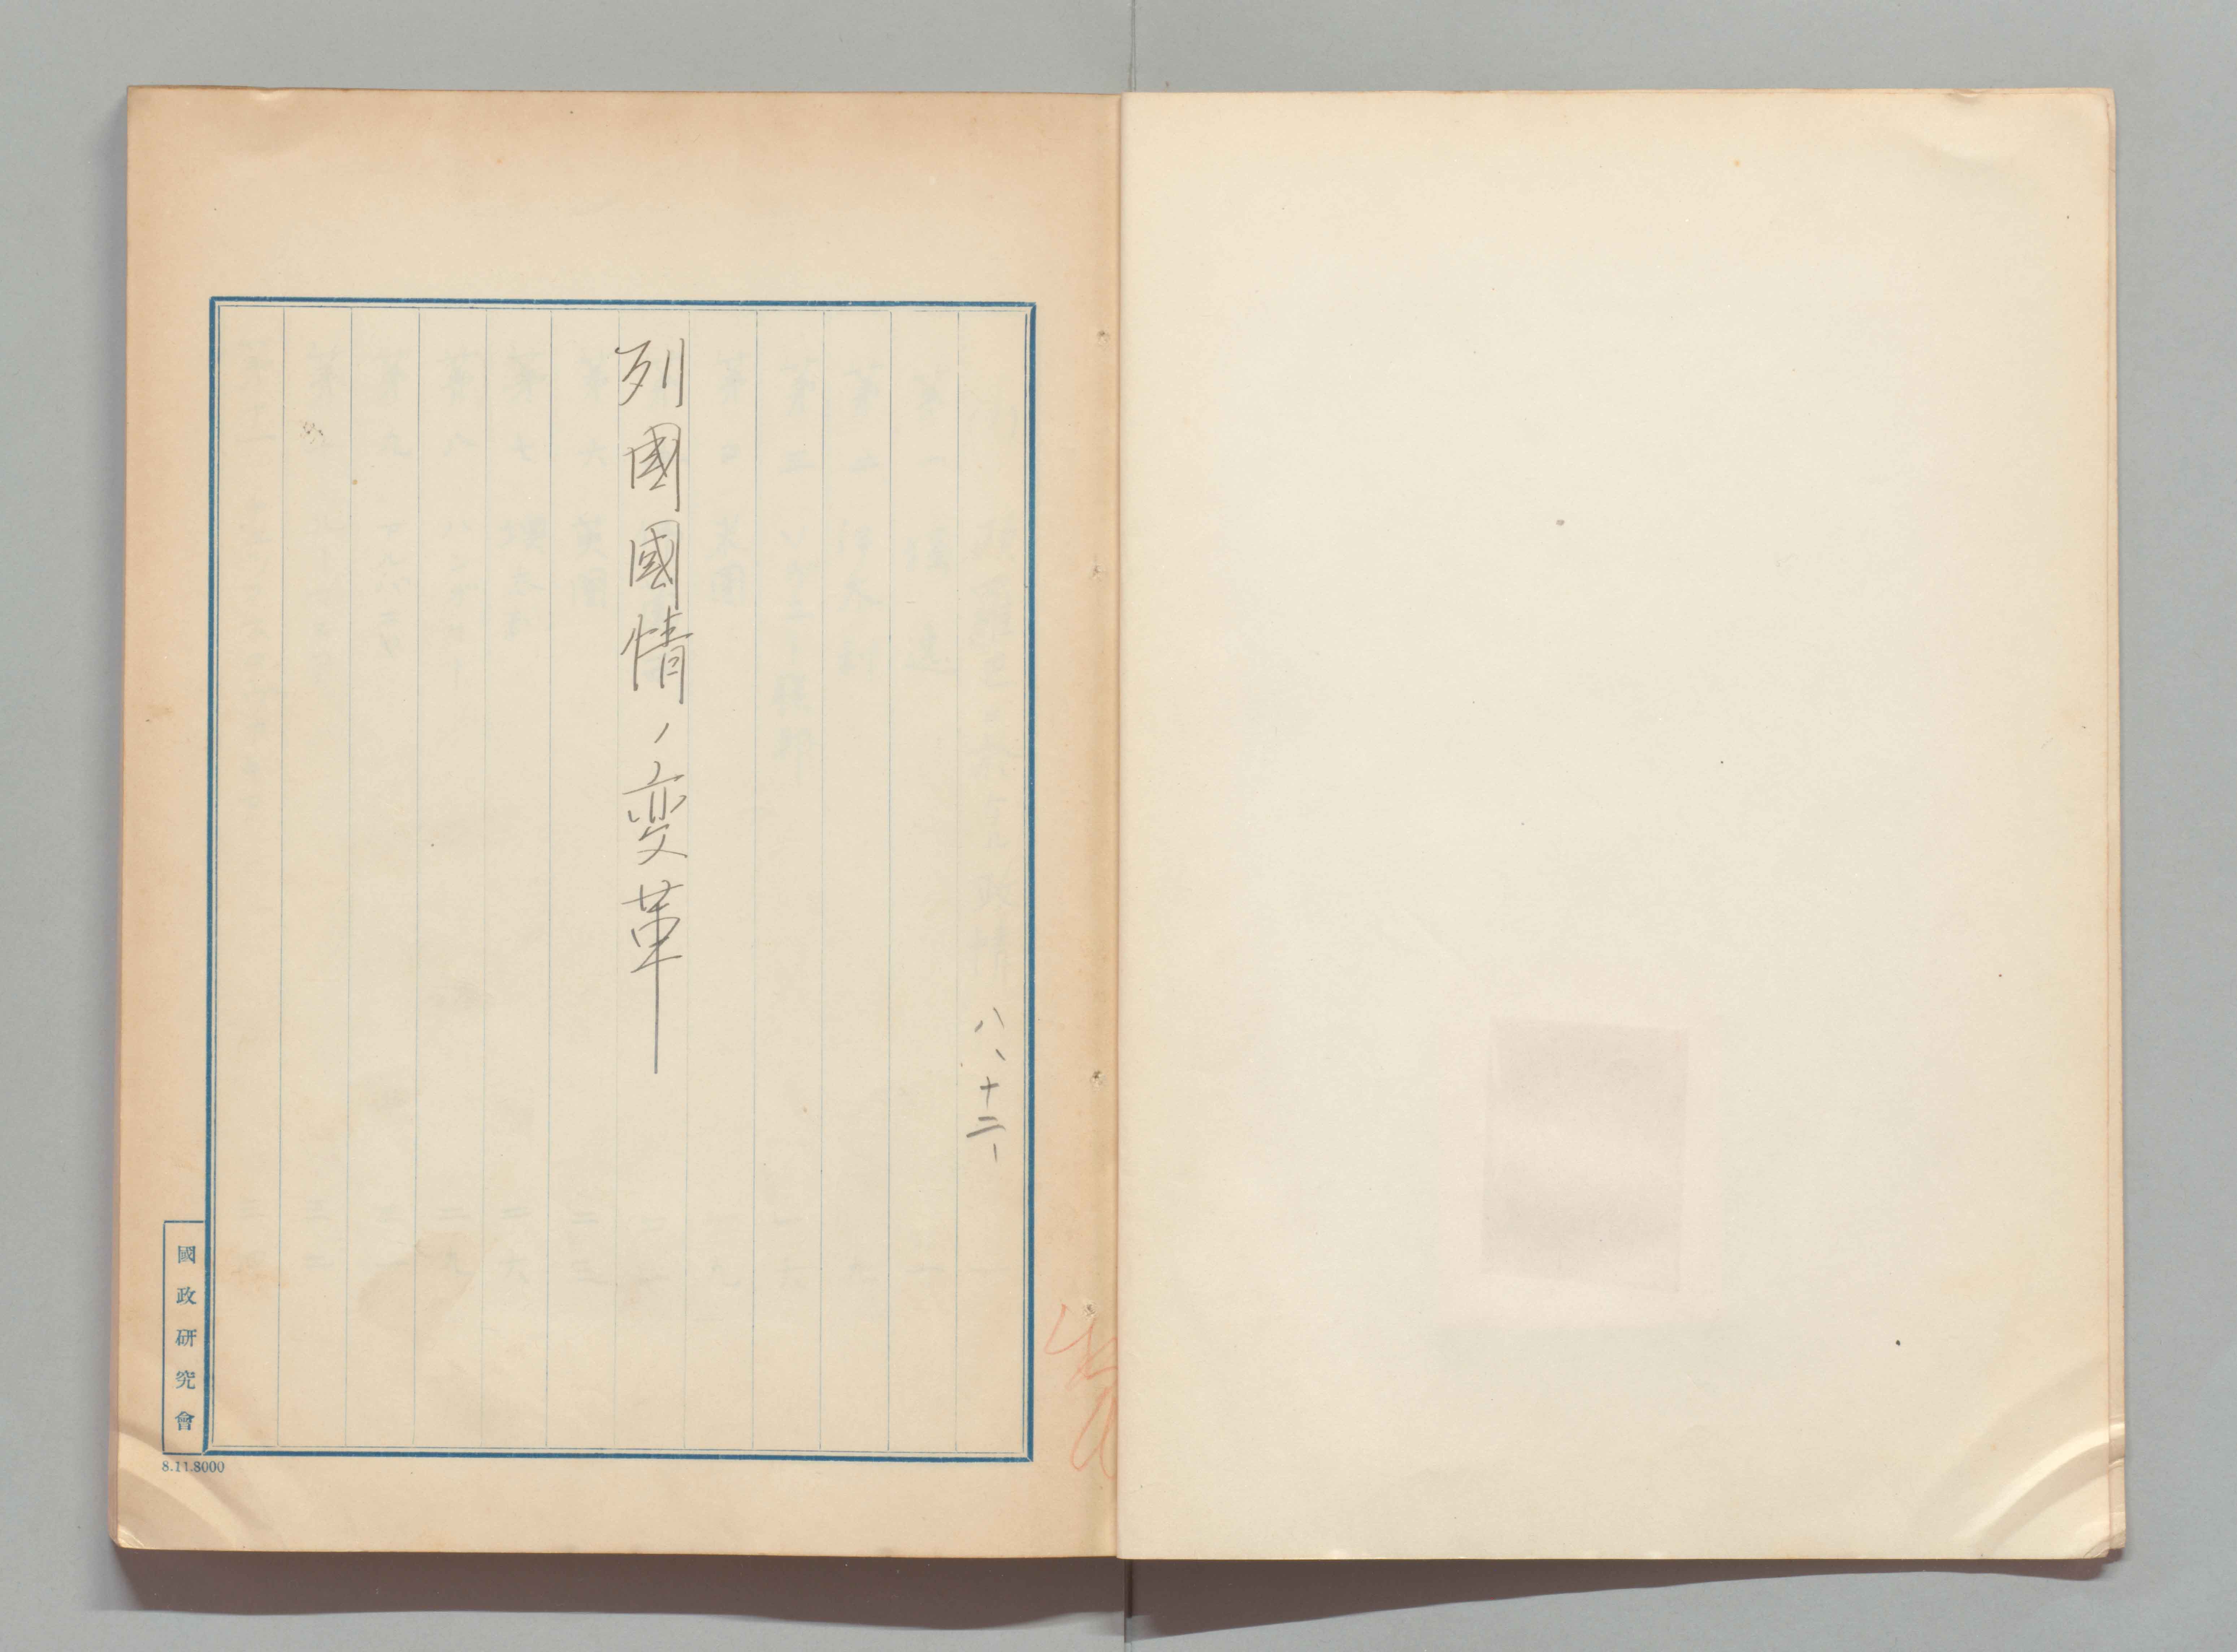 八、十二、
列國國情ノ変革
國政研究會
8.11.8000